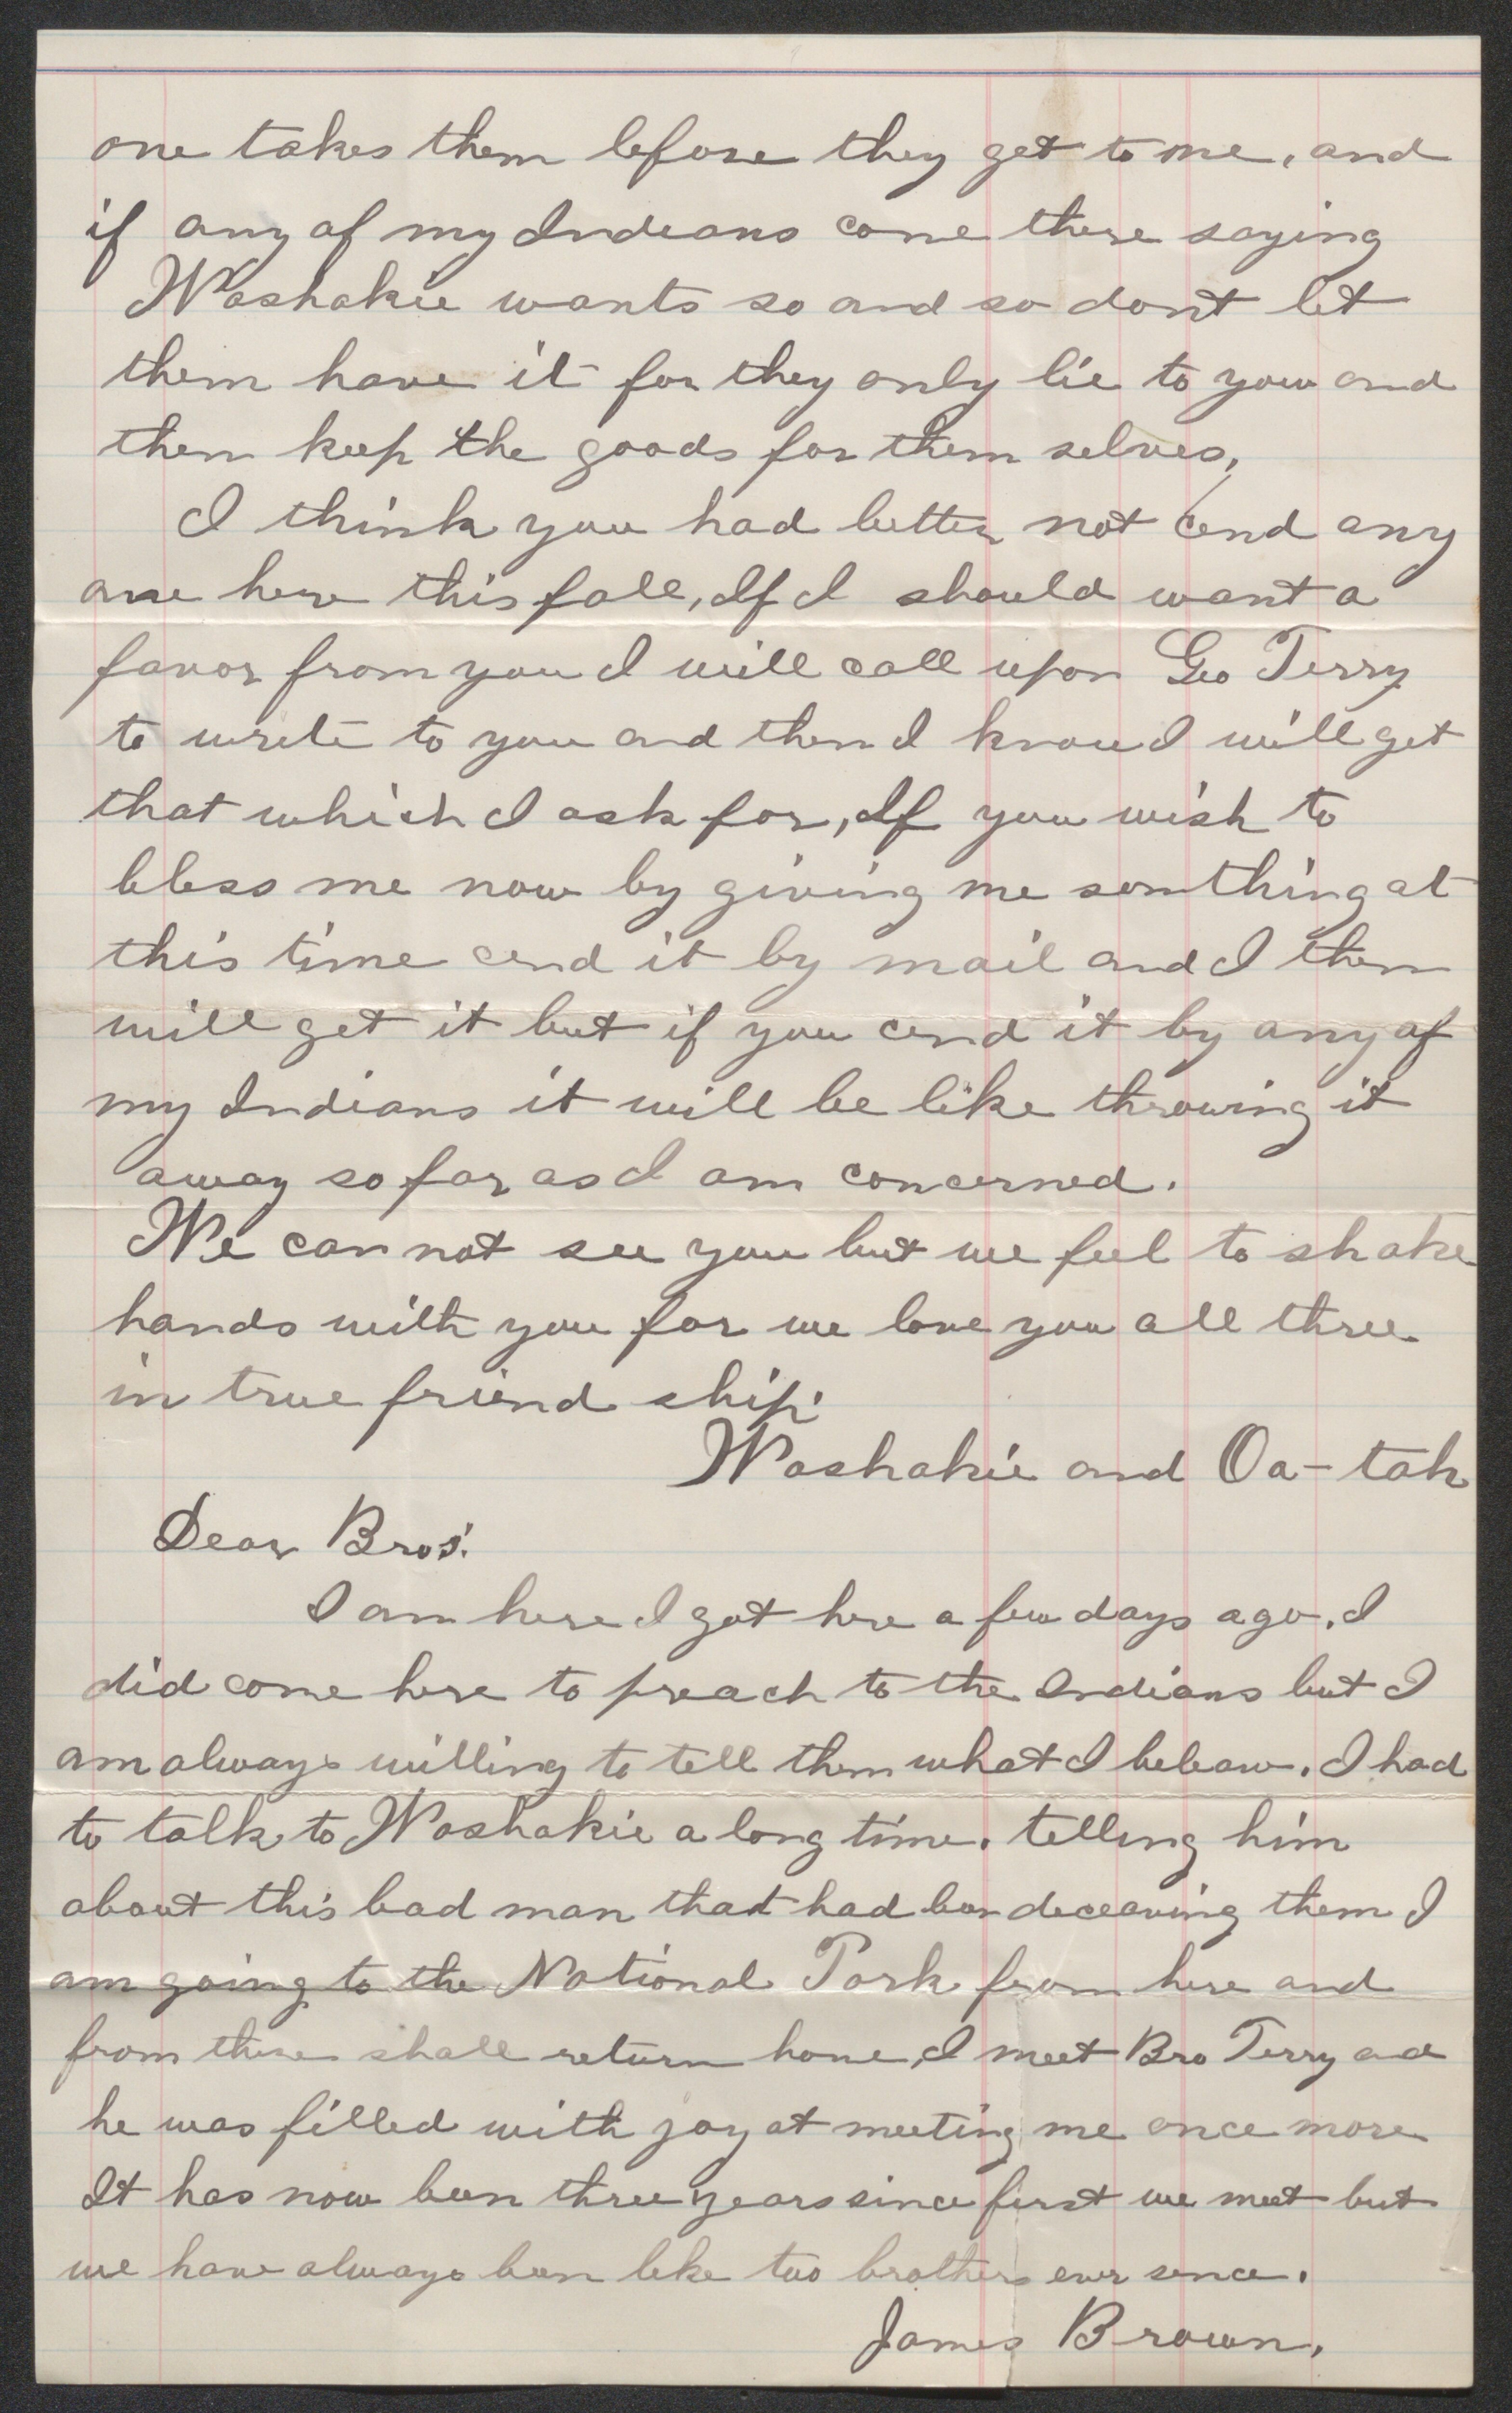 one takes them before they get to me, and
if any of my Indeans come there saying
Washakie wants so and so dont let
them have it for they only lie to you and
then keep the goods for them selves,
I think you had better not cend any
one here this fall, If I should want a
favor from you I will call upon Geo Terry
to write to you and then I know I will get
that which I ask for, If you wish to
bless me now by giving me somthing at
this time cend it by mail and I then
will get it but if you cend it by any of
my Indians it will be like throwing it
away so far as I am concerned.
We can not see you but we feel to shake
hands with you for we love you all three
in true friend ship.
Washakie and Oa-tah
Dear Bros.
I am here I got here a few days ago. I
did come here to preach to the Indians but I
am always willing to tell them what I beleave. I had
to talk to Washakie a long time. telling him
about this bad man that had ben deceaving them I
am going to the National Park from here and
from there shall return home, I meet Bro Terry and
he was filled with joy at meeting me once more
It has now been three years since first we meet but
we have always ben like two brothers ever sence.
James Brown.